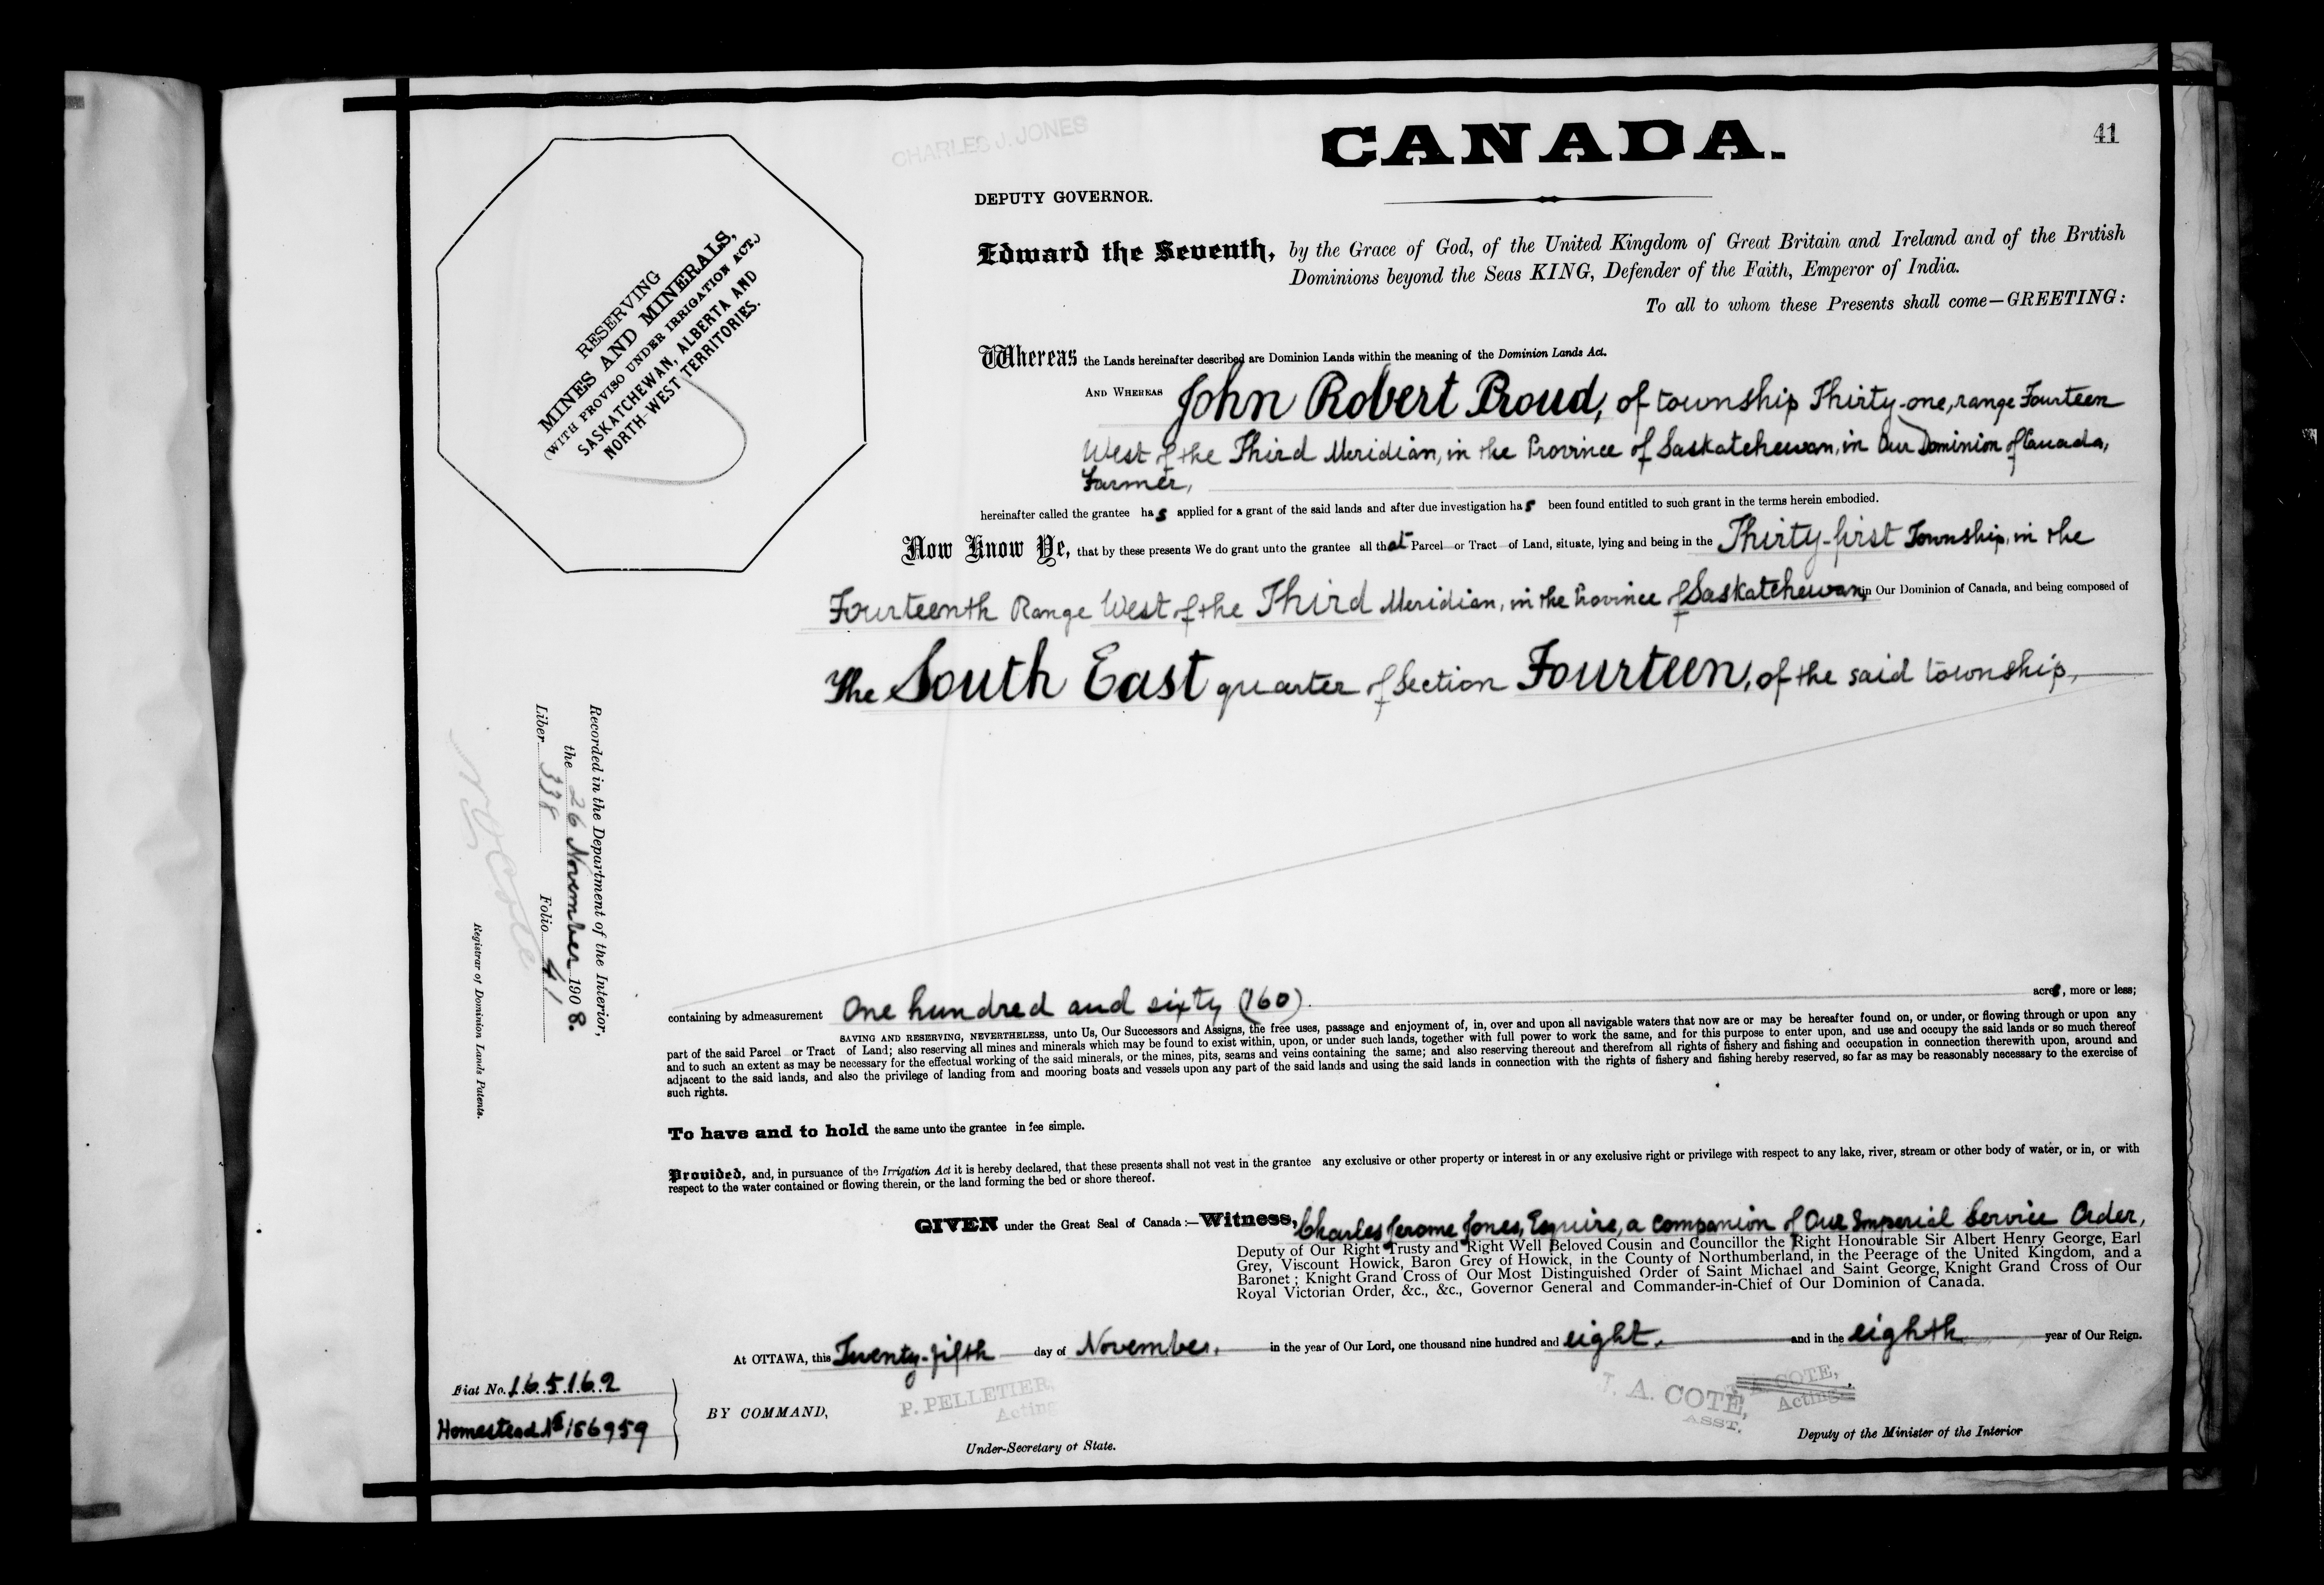 41
CHARLES J. JONES
CANADA.
DEPUTY GOVERNOR.
RESERVING
MINES AND MINERALS,
(WITH PROVISO UNDER IRRIGATION ACT.)
SASKATCHEWAN, ALBERTA AND
NORTH-WEST TERRITORIES.
Edward the Seventh, by the Grace of God, of the United Kingdom of Great Britain and Ireland and of the British
Dominions beyond the Seas KING, Defender of the Faith, Emperor of India.
To all to whom these Presents shall come—GREETING:
Whereas the Lands hereinafter described are Dominion Lands within the meaning of the Dominion Lands Act.
AND WHEREAS John Robert Proud, of township Thirty-one, range Fourteen
West of the Third Meridian, in the Province of Saskatchewan, in Our Dominion of Canada,
Farmer,
hereinafter called the grantee has applied for a grant of the said lands and after due investigation has been found entitled to such grant in the terms herein embodied.
Now Know Ye, that by these presents We do grant unto the grantee all that Parcel or Tract of Land, situate, lying and being in the Thirty-first Township, in the
Fourteenth Range West of the Third Meridian, in the Province of Saskatchewan, in Our Dominion of Canada, and being composed of
The South East quarter of Section Fourteen, of the said township,
Recorded in the Department of the Interior,
the 26 November 1908.
Liber 338 Folio 41
N O Cote
Registrar of Dominion Lands Patents.
containing by admeasurement One hundred and sixty (160) acres, more or less;
SAVING AND RESERVING, NEVERTHELESS, unto Us, Our Successors and Assigns, the free uses, passage and enjoyment of, in, over and upon all navigable waters that now are or may be hereafter found on, or under, or flowing through or upon any
part of the said Parcel or Tract of Land; also reserving all mines and minerals which may be found to exist within, upon, or under such lands, together with full power to work the same, and for this purpose to enter upon, and use and occupy the said lands or so much thereof
and to such an extent as may be necessary for the effectual working of the said minerals, or the mines, pits, seams and veins containing the same; and also reserving thereout and therefrom all rights of fishery and fishing and occupation in connection therewith upon, around and
adjacent to the said lands, and also the privilege of landing from and mooring boats and vessels upon any part of the said lands and using the said lands in connection with the rights of fishery and fishing hereby reserved, so far as may be reasonably necessary to the exercise of
such rights.
To have and to hold the same unto the grantee in fee simple.
Provided, and, in pursuance of the Irrigation Act it is hereby declared, that these presents shall not vest in the grantee any exclusive or other property or interest in or any exclusive right or privilege with respect to any lake, river, stream or other body of water, or in, or with
respect to the water contained or flowing therein, or the land forming the bed or shore thereof.
GIVEN under the Great Seal of Canada:—Witness, Charles Jerome Jones, Esquire, a Companion of Our Imperial Service Order,
Deputy of Our Right Trusty and Right Well Beloved Cousin and Councillor the Right Honourable Sir Albert Henry George, Earl
Grey, Viscount Howick, Baron Grey of Howick, in the County of Northumberland, in the Peerage of the United Kingdom, and a
Baronet; Knight Grand Cross of Our Most Distinguished Order of Saint Michael and Saint George, Knight Grand Cross of Our
Royal Victorian Order, &c., &c., Governor General and Commander-in-Chief of Our Dominion of Canada.
At OTTAWA, this Twenty-fifth day of November, in the year of Our Lord, one thousand nine hundred and eight. and in the eighth year of Our Reign.
Fiat No. 165162
Homestead No 156959
BY COMMAND,
P. PELLETIER,
Acting
Under-Secretary of State.
J. A. COTE,
ASST.
COTE,
Acting
Deputy of the Minister of the Interior